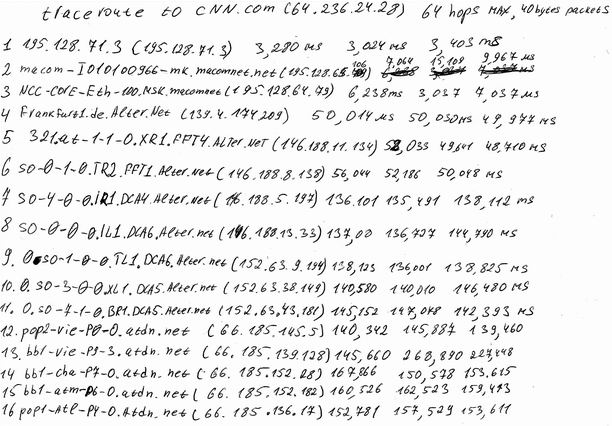 traceroute to CNN.com (64.236.24.28) 64 hops MAX, 40 bytes packets
1 195.128.71.3 (195.128.71.3) 3,280 ms 3,024 ms 3,403 ms
2 macom-I010100966-mk.macomnet.net (195.128.65.106) 7,064 15,109 9,967 ms
3 NCC-CORE-Eth-100.MSK.macomnet (195.128.64.79) 6,238ms 3,037 7,037 ms
4 Frankfurt1.de.Alter.Net (139.4.174.209) 50,014 ms 50,050ms 49,977 ms
5 321.at-1-1-0.XR1.FFT4.Alter.NeT (146.188.11.134) 58,033 49,641 48,710 ms
6 SO-0-1-0.TR2.FFT1.Alter.net (146.188.8.138) 56,044 52,186 50,048 ms
7 SO-4-0-0.IR1.DCA4.Alter.net (146.188.5.197) 136.101 135,491 138,112 ms
8 SO-0-0-0.IL1.DCA6.Alter.net (146.188.13.33) 137,00 136,727 144,790 ms
9. 0.SO-1-0-0.TL1.DCA6.Alter.net (152.63.9.194) 138,123 136,001 138,825 ms
10. 0.SO-3-0-0.XL1.DCA5.Alter.net (152.63.38.149) 140,580 140,010 146,480 ms
11. 0.SO-7-1-0.BR1.DCA5.Alter.net (152.63.43.181) 145,152 147,048 142,393 ms
12. pop2-vie-P0-0.atdn.net (66.185.145.5) 140,342 145,887 139,460
13. bb1-vie-P9-3.atdn.net (66.185.139.128) 145,660 268,890 227,448
14 bb1-cha-P7-0.atdn.net (66.185.152.28) 167,866 150,578 153.615
15 bb1-atm-P6-0.atdn.net (66.185.152.182) 160,526 162,523 159,493
16 pop1-Atl-P4-0.Atdn.net (66.185.136.17) 152,781 157,529 153,611